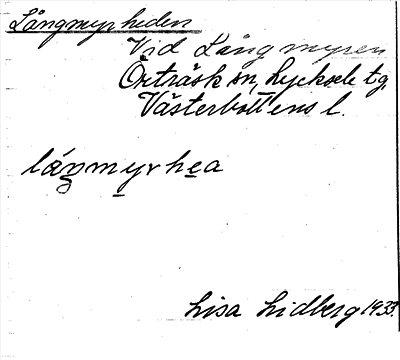 Långmyrheden
Vid Långmyren
Örträsk sn, Lycksele tg.
Västerbottens l.
låŋmyrhea
Lisa Lidberg 1933.